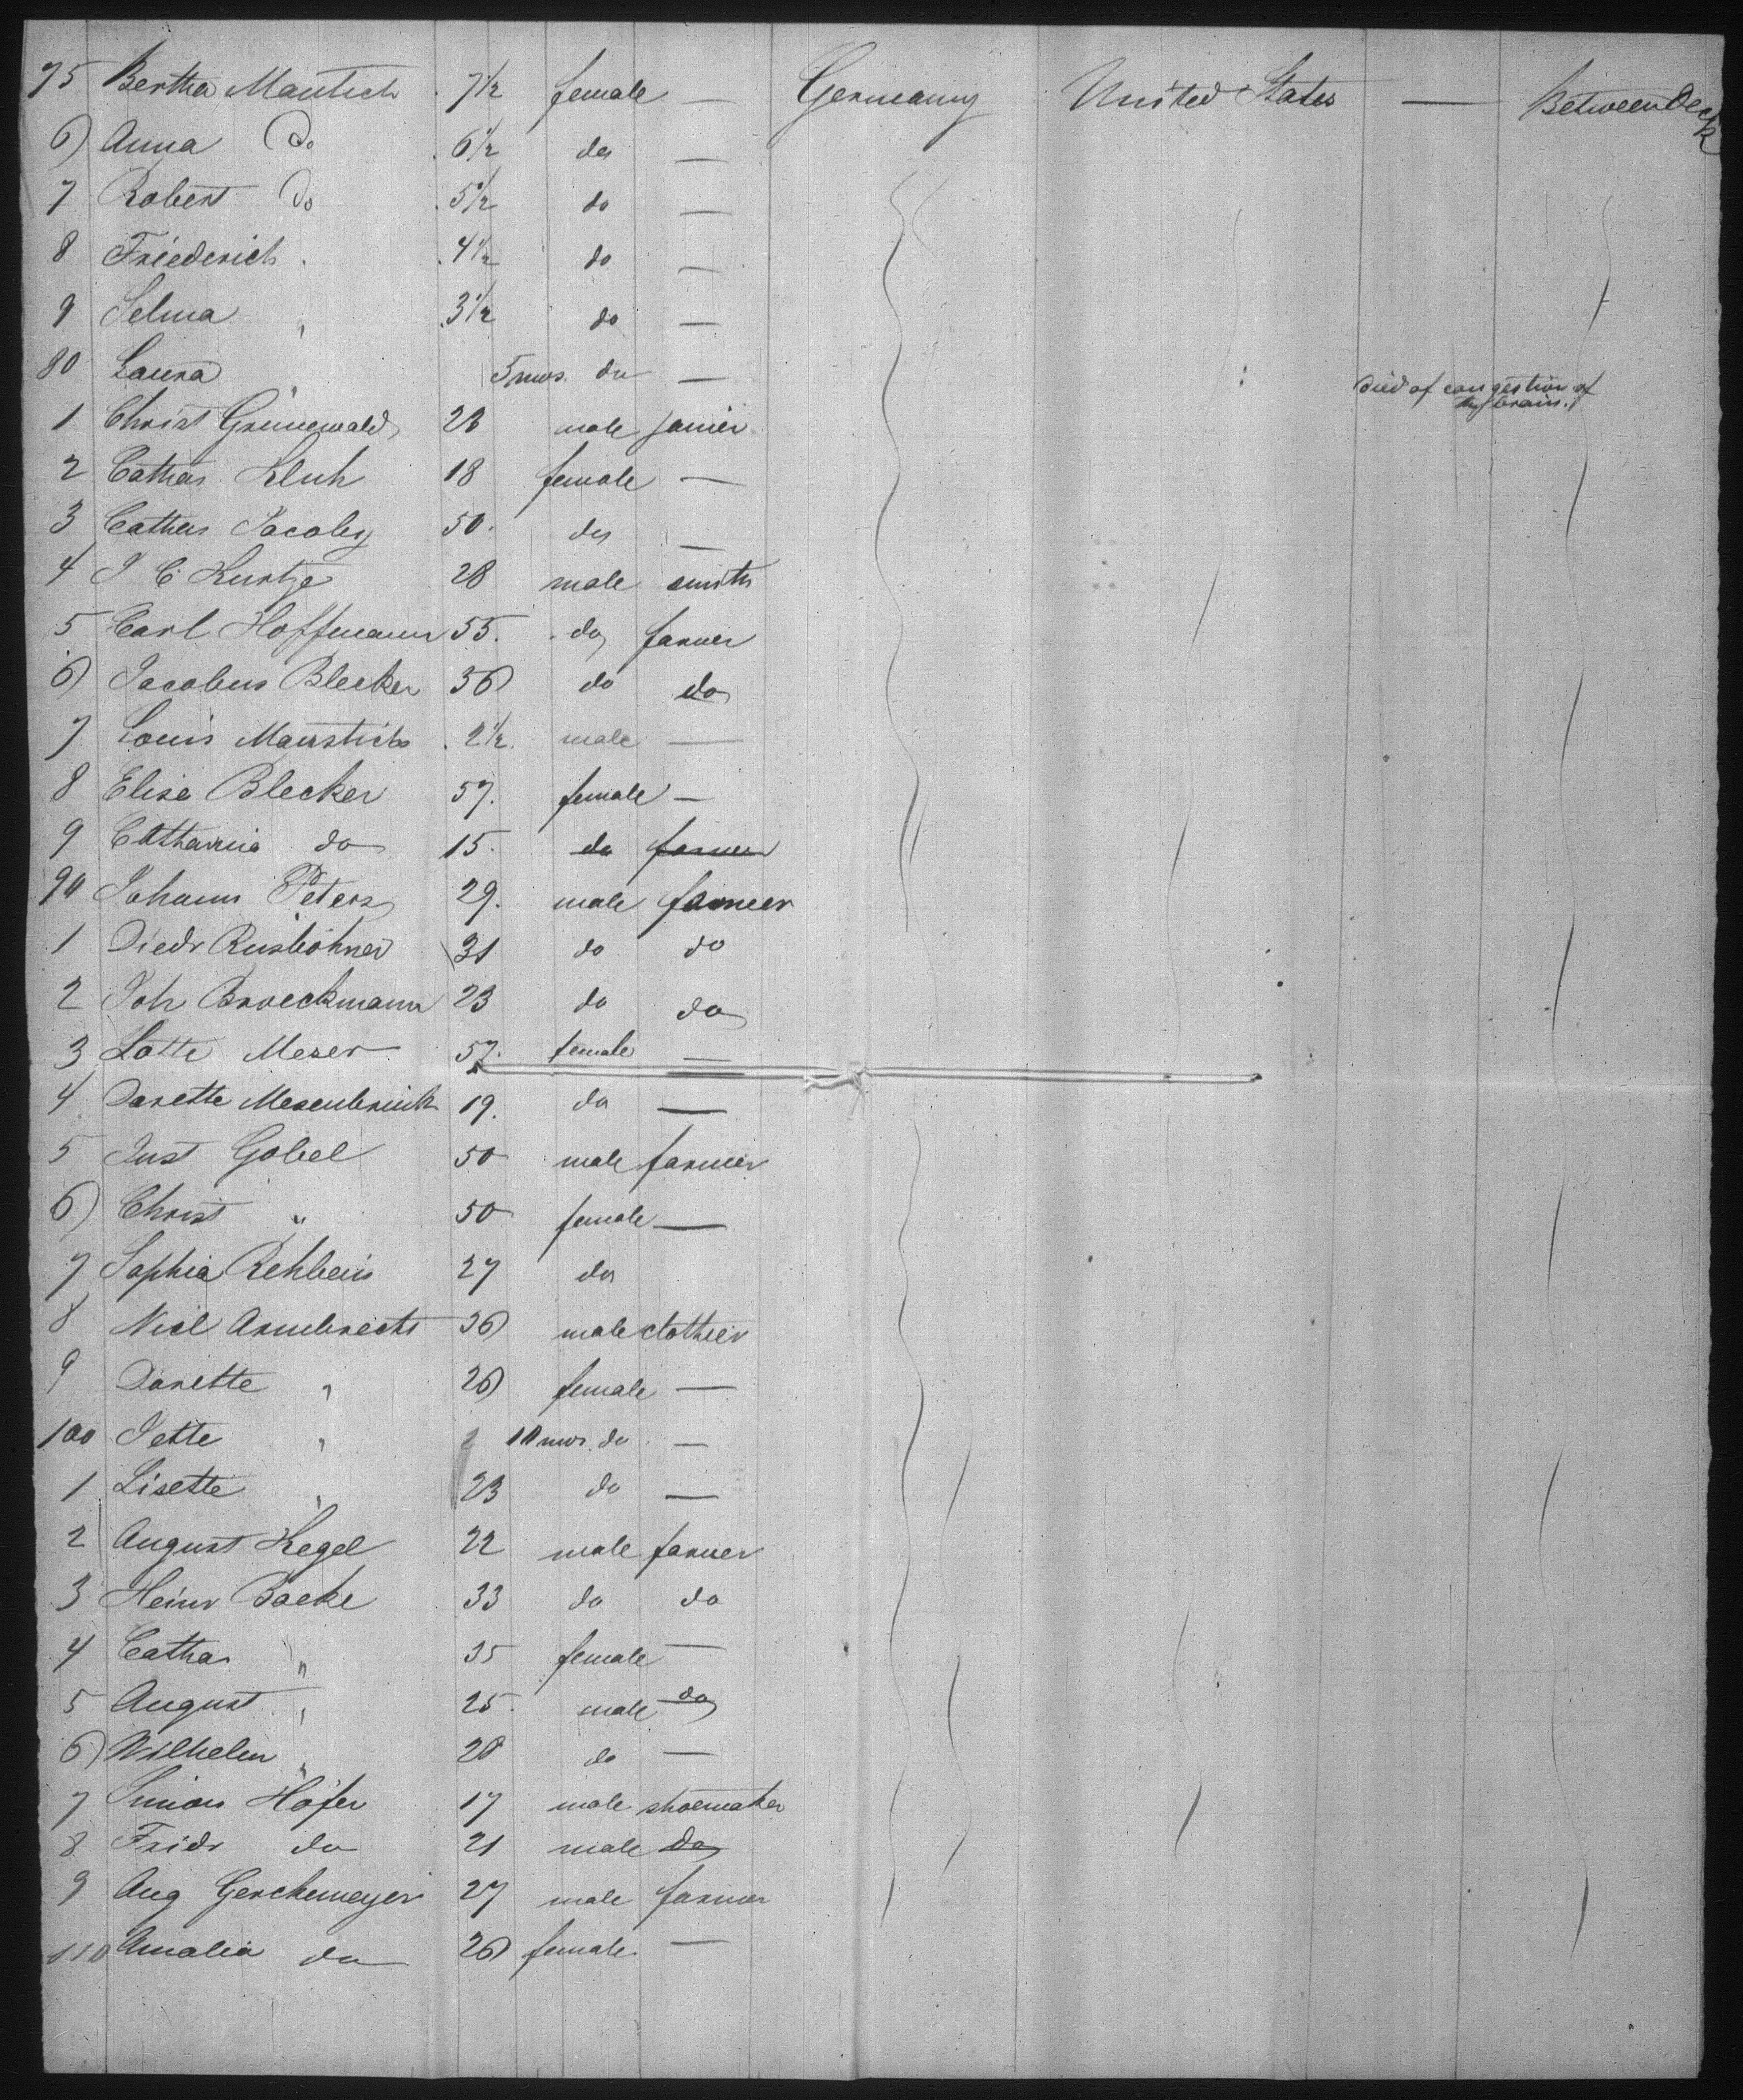 75 Bertha Mautsch 7½ female — Germany United States — Between Deck
6 Anna Do 6½ do —
7 Robert Do 5½ do —
8 Friederich 4½ do —
9 Selma " 3½ do —
80 Laura " 5 mos. do — Died of congestion of
the brain.
1 Christ Grünewald 28 male farmer
2 Catha Kluh 18 female —
3 Catha Jacoby 50. do —
4 J C Kuntze 28 male smith
5 Carl Hoffmann 55. do farmer
6 Jacobus Blecker 56 do do
7 Louis 2½ male —
8 Elise Blecker 57. female —
9 Catharina do 15. do farmer
90 Johann Peters 29. male farmer
1 Diedr 31 do do
2 Joh Broeckmann 23 do do
3 Lotte Meser 57. female —
4 Dorette Mesenbrink 19. do —
5 Just Gobel 50 male farmer
6 Christ " 50 female —
7 Sophia Rehbein 27 do
8 Armbrecht 36 male clothier
9 Dorette " 26 female —
100 Jette " 10 mos. do —
1 Lisette " 23 do —
2 August Kegel 22 male farmer
3 Heinr Backe 33 do do
4 Catha " 35 female —
5 August " 25 male do
6 Wilhelm " 28 do —
7 Simon Höfer 17 male shoemaker
8 Fridr do 21 male do
9 Aug Gerckemeyer 27 male farmer
110 Amalia do 26 female —